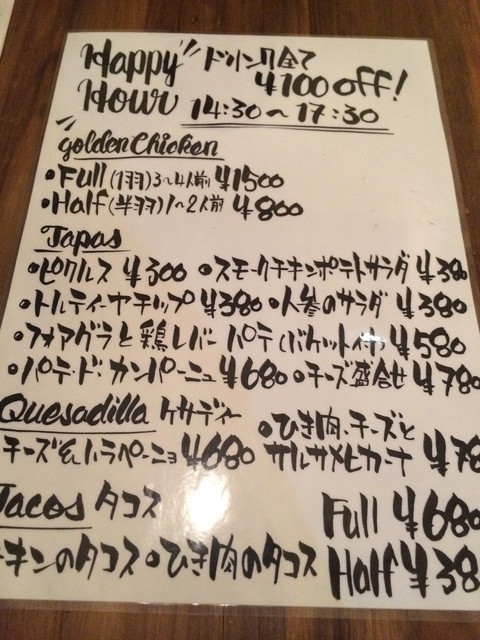 Happy ドリンク全て
¥100 off!
Hour 14:30〜17:30
golden Chicken
・Full (1羽) 3〜4人前 ¥1500
・Half (半羽) 1〜2人前 ¥800
Tapas
・ピクルス ¥300 ・スモークチキンポテトサラダ ¥380
・トルティーヤチップ ¥380 ・人参のサラダ ¥380
・フォアグラと鶏レバーパテ (バケット付) ¥580
・パテ・ド・カンパーニュ ¥680 ・チーズ盛合せ ¥780
Quesadilla ケサディー ・ひき肉、チーズと
チーズ&ハラペーニョ ¥680 サルサメヒカーナ ¥78
Tacos タコス Full ¥680
チキンのタコス ・ひき肉のタコス Half ¥38